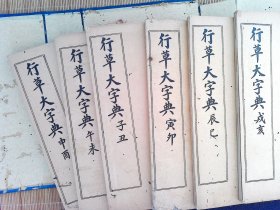 行草大字典 申酉
行草大字典 午未
行草大字典 子丑
行草大字典 寅卯
行草大字典 辰巳
行草大字典 戌亥